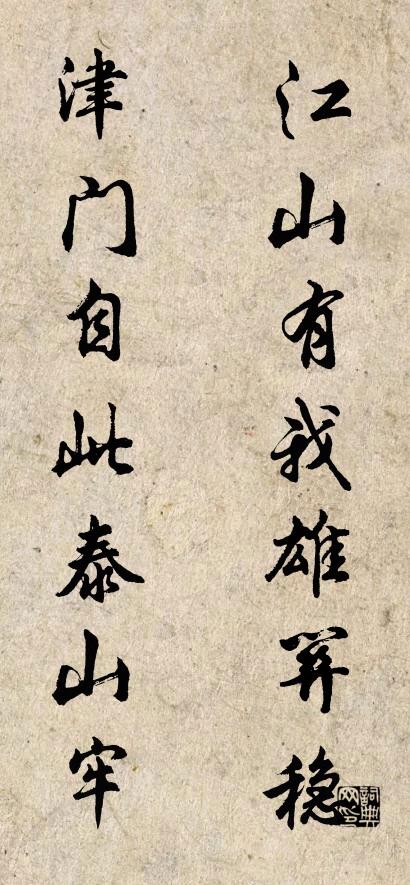 江山有我雄关稳
津门自此泰山牢
词典网印